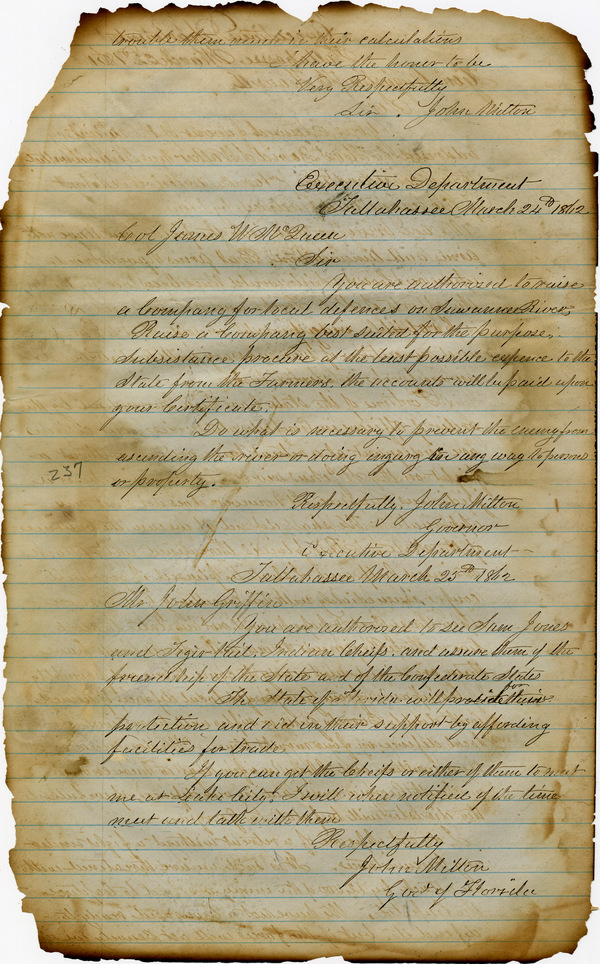 trouble them much in their calculations
I have the honor to be
Very Respectfully
Sir. John Milton
Executive Department
Tallahassee March 24th 1862
Col James W McQueen
Sir
You are authorized to raise
a Company for local defences on Suwannee River,
Raise a Company best suited for the purpose,
Subsistance procure at the least possible expence to the
State from the Farmers. the accounts will be paid upon
your Certificate.
Do what is necessary to prevent the enemy from
ascending the river or doing injury in any way to persons
or property.
237
Respectfully. John Milton
Governor
Executive Department
Tallahassee March 25th 1862
Mr John Griffin
You are authorized to see Sam Jones
and Tiger Tail, Indian Cheifs, and assure them of the
friendship of the State and of the Confederate States
The State of Florida will provide for their
protection and aid in their support by affording
facilities for trade.
If you can get the Cheifs or either of them to meet
me at Lake City, I will when notified of the time
meet and talk with them
Respectfully
John Milton
Govr of Florida